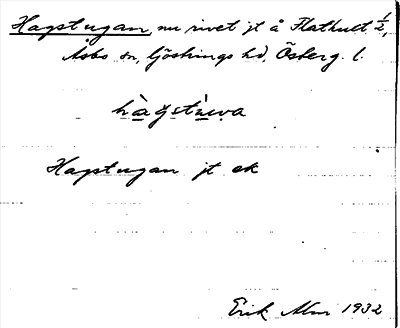 Hagstugan, nu rivet jt å Flathult 1/2,
Åsbo sn, Göstrings hd, Österg. l.
hàgstùva
Hagstugan jt ek
Erik Alm 1932